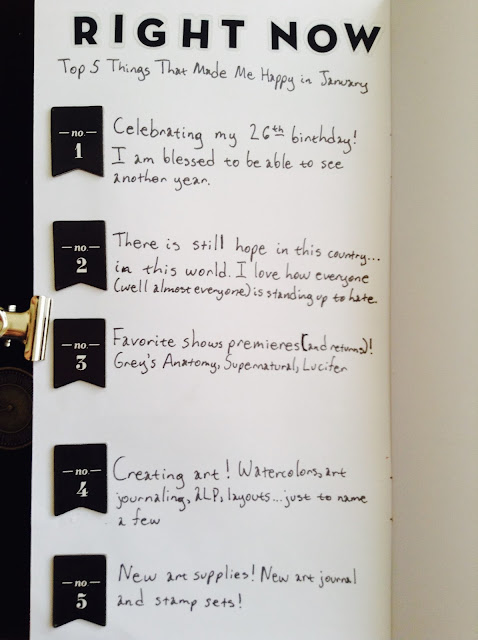 RIGHT NOW
Top 5 Things That Made Me Happy in January
no.
1
Celebrating my 26th birthday!
I am blessed to be able to see
another year.
no.
2
There is still hope in this country...
in this world. I love how everyone
(well almost everyone) is standing up to hate.
no.
3
Favorite shows premieres (and returns)!
Grey's Anatomy, Supernatural, Lucifer
no.
4
Creating art! Watercolors, art
journaling, 2LP, layouts... just to name
a few
no.
5
New art supplies! New art journal
and stamp sets!